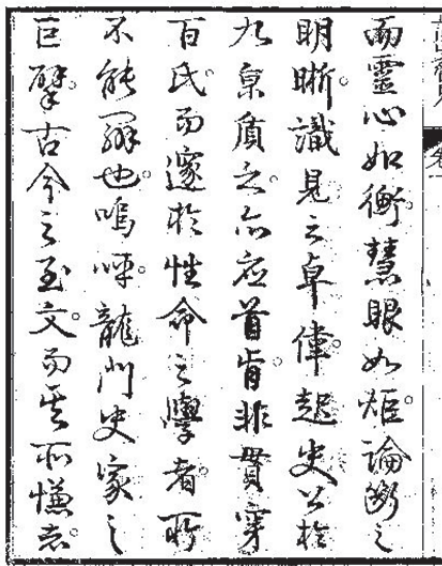 而靈心如衡。慧眼如炬。論斷之
明晰。識見之卓偉。起史公於
九泉質之。亦应首肯。非貫穿
百氏。而邃於性命之學者。所
不能辦也。嗚呼。龍門史家之
巨擘。古今之至文。而其所慊